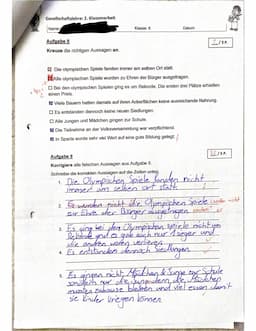 Gesellschaftslehre: 2. Klassenarbeit
Name: Klasse: 6. Datum:
Aufgabe 8
Kreuze die richtigen Aussagen an.
Die olympischen Spiele fanden immer am selben Ort statt.
Die olympischen Spiele wurden zu Ehren der Bürger ausgetragen.
Bei den olympischen Spielen ging es um Rekorde. Die ersten drei Plätze erhielten
einen Preis.
Viele Bauern hatten damals auf ihren Ackerflächen keine ausreichende Nahrung.
Es entstanden dennoch keine neuen Siedlungen.
Alle Jungen und Mädchen gingen zur Schule.
Die Teilnahme an der Volksversammlung war verpflichtend.
In Sparta wurde sehr viel Wert auf eine gute Bildung gelegt.
Aufgabe 9
Korrigiere alle falschen Aussagen aus Aufgabe 8.
Schreibe die korrekten Aussagen auf die Zeilen unten.
Die Olympischen Spiele fanden nicht
immer am selben ort statt
Es wurden nicht die Olympischen Spiele
zur Ehre der Bürger ausgetragen
Es ging bei den Olympischen Spiele nicht um
und es gab auch nur 1 sieger und
die andren waren verlierer
Es entstanden dennoch Siedlungen
Es gingen nicht Mädchen & Junge zur Schule
sondern nur die Jungen, die Mädchen
mussten zuhause bleiben und viel essen damit
sie Kinder kriegen können